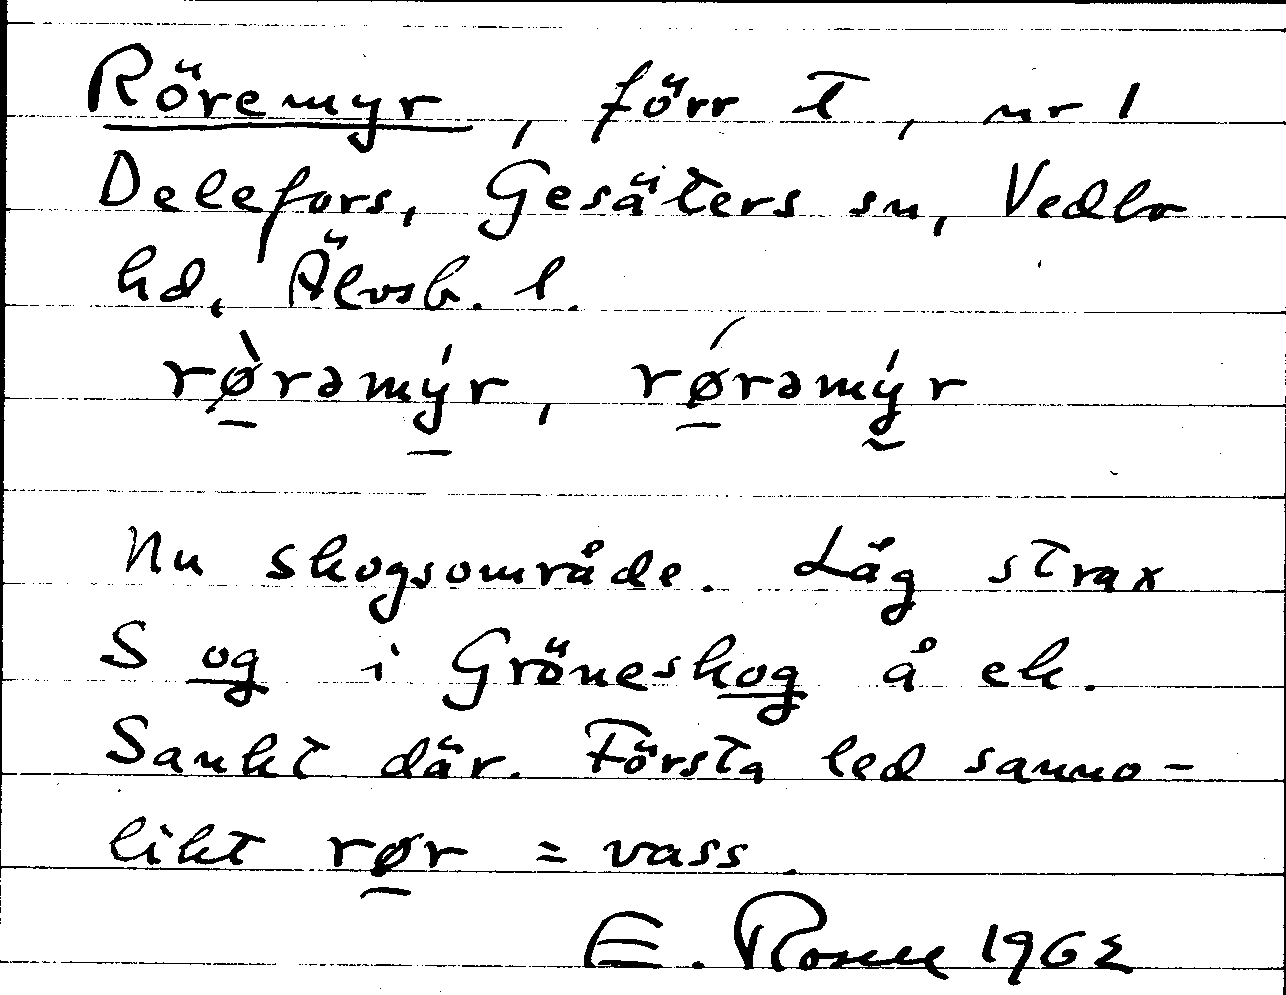 Röremyr, förr t, nr 1
Delefors, Gesäters sn, Vedbo
hd, Älvsb. l.
rø̠̀rəmý̠r, rǿ̠rəmý̰r
Nu skogsområde. Låg strax
S og i Gröneskog å ek.
Sankt där. Första led sanno-
likt rø̠r = vass.
E. Rosell 1962